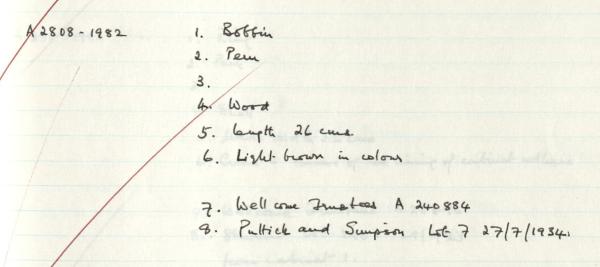 A2808-1982 1. Bobbin
2. Peru
3.
4. Wood
5. length 26 cms
6. Light brown in colour
7. Wellcome Trustees A 240884
8. Puttick and Simpson Lot 7 27/7/1934.